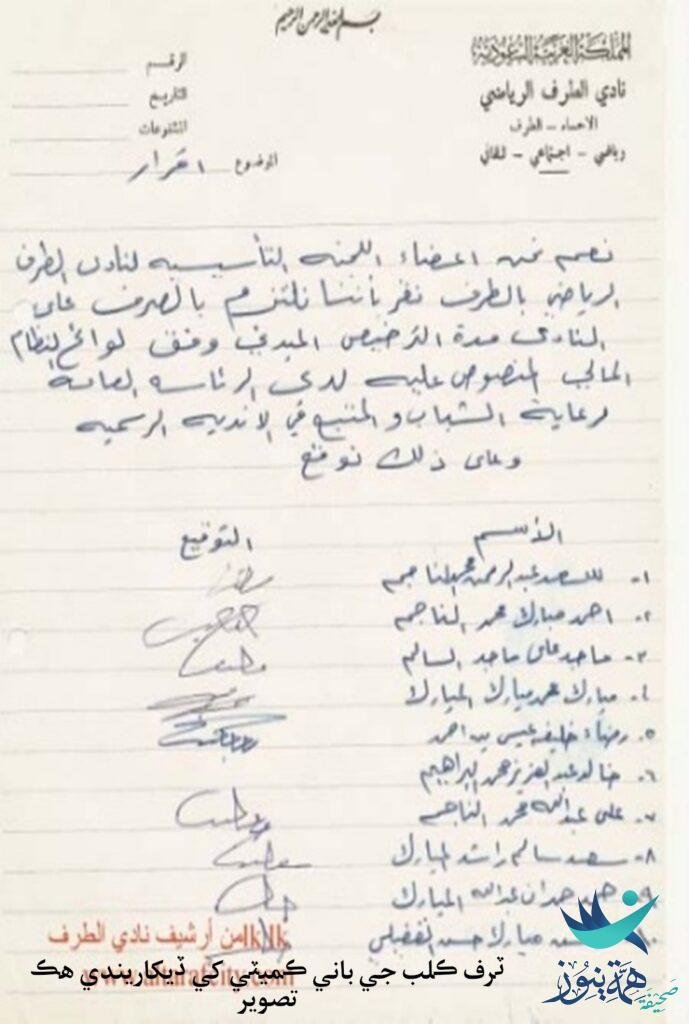 بسم الله الرحمن الرحيم
المملكة العربية السعودية
نادي الطرف الرياضي
الاحساء - الطرف
رياضي - اجتماعي - ثقافي
الرقم
التاريخ
المشفوعات
الموضوع اقرار
نحن اعضاء اللجنه التأسيسيه لنادي الطرف
الرياضي بالطرف نقر بأننا نلتزم بالصرف على
النادي مدة الترخيص المبدئي وفق لوائح النظام
المالي المنصوص عليه لدى الرئاسه العامة
لرعاية الشباب و المتبع في الانديه الرسميه
وعلى ذلك نوقع
الأسم
التوقيع
١- عبدالرحمن محمد الناجم
٢- احمد مبارك محمد الناجم
٣- ماجد على ماجد السالم
٤- مبارك محمد مبارك المبارك
٥- خليفه عيسى بن احمد
٦- خالد عبدالعزيز محمد البراهيم
٧- على عبدالله محمد الناجم
٨- سعد سالم راشد المبارك
٩- حمدان عبدالله المبارك
١٠- مبارك حسن الفضيلي
من أرشيف نادي الطرف
ٽرف ڪلب جي باني ڪميٽي کي ڏيکاريندي هڪ
تصوير
صحيفة
همة نيوز